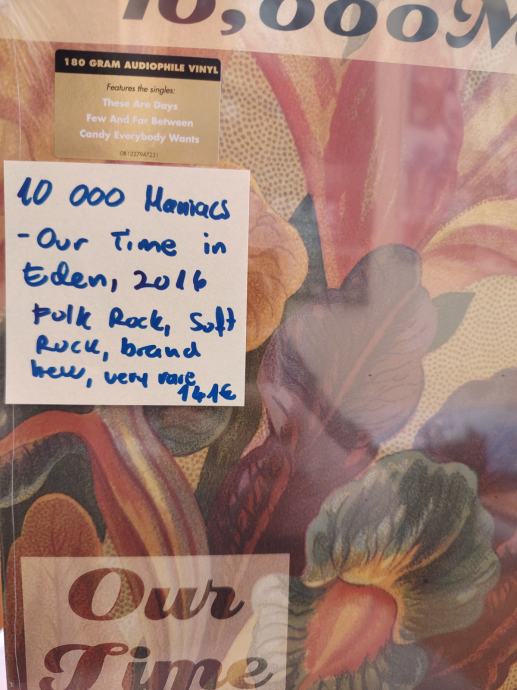 10,000 M
180 GRAM AUDIOPHILE VINYL
Features the singles:
These Are Days
Few And Far Between
Candy Everybody Wants
081227947231
10 000 Maniacs
- Our Time in
Eden, 2016
Folk Rock, Soft
Rock, brand
new, very rare
141€
Our
Time